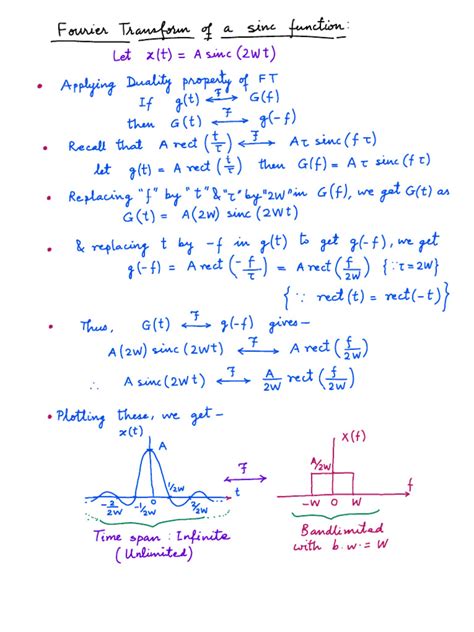 Fourier Transform of a sinc function:
Let x(t) = A sinc (2Wt)
• Applying Duality property of FT
If g(t) ⟷ᶠ G(f)
then G(t) ⟷ᶠ g(-f)
• Recall that A rect (t/τ) ⟷ᶠ Aτ sinc (fτ)
let g(t) = A rect (t/τ) then G(f) = Aτ sinc (fτ)
• Replacing "f" by "t" & "τ" by "2W" in G(f), we get G(t) as
G(t) = A(2W) sinc (2Wt)
• & replacing t by -f in g(t) to get g(-f), we get
g(-f) = A rect (-f/τ) = A rect (f/2W) {∵ τ = 2W}
{∵ rect(t) = rect(-t)}
• Thus, G(t) ⟷ᶠ g(-f) gives-
A(2W) sinc (2Wt) ⟷ᶠ A rect (f/2W)
∴ A sinc (2Wt) ⟷ᶠ A/2W rect (f/2W)
• Plotting these, we get -
x(t)
A
-2/2W -1/2W 0 1/2W 2/2W t
Time span: Infinite
(Unlimited)
ℱ
X(f)
A/2W
f
-W 0 W
Bandlimited
with b.w. = W